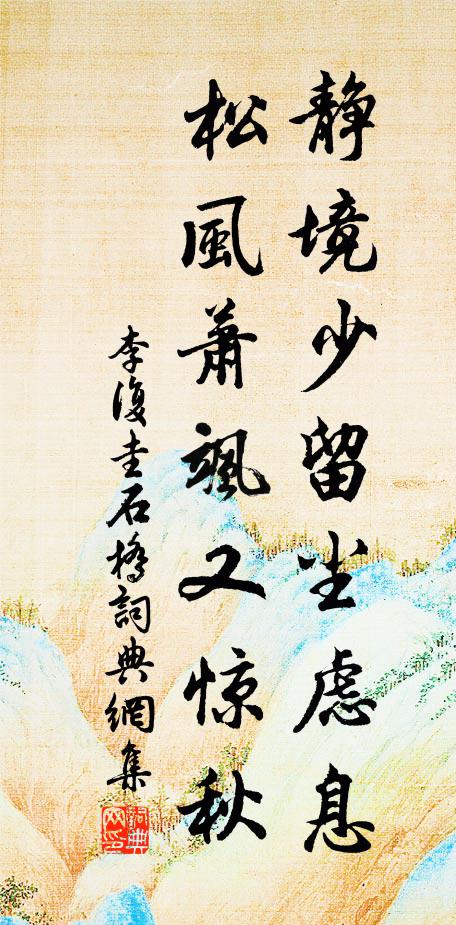 静境少留尘虑息
松風蕭颯又惊秋
李復圭石橋詞典網集